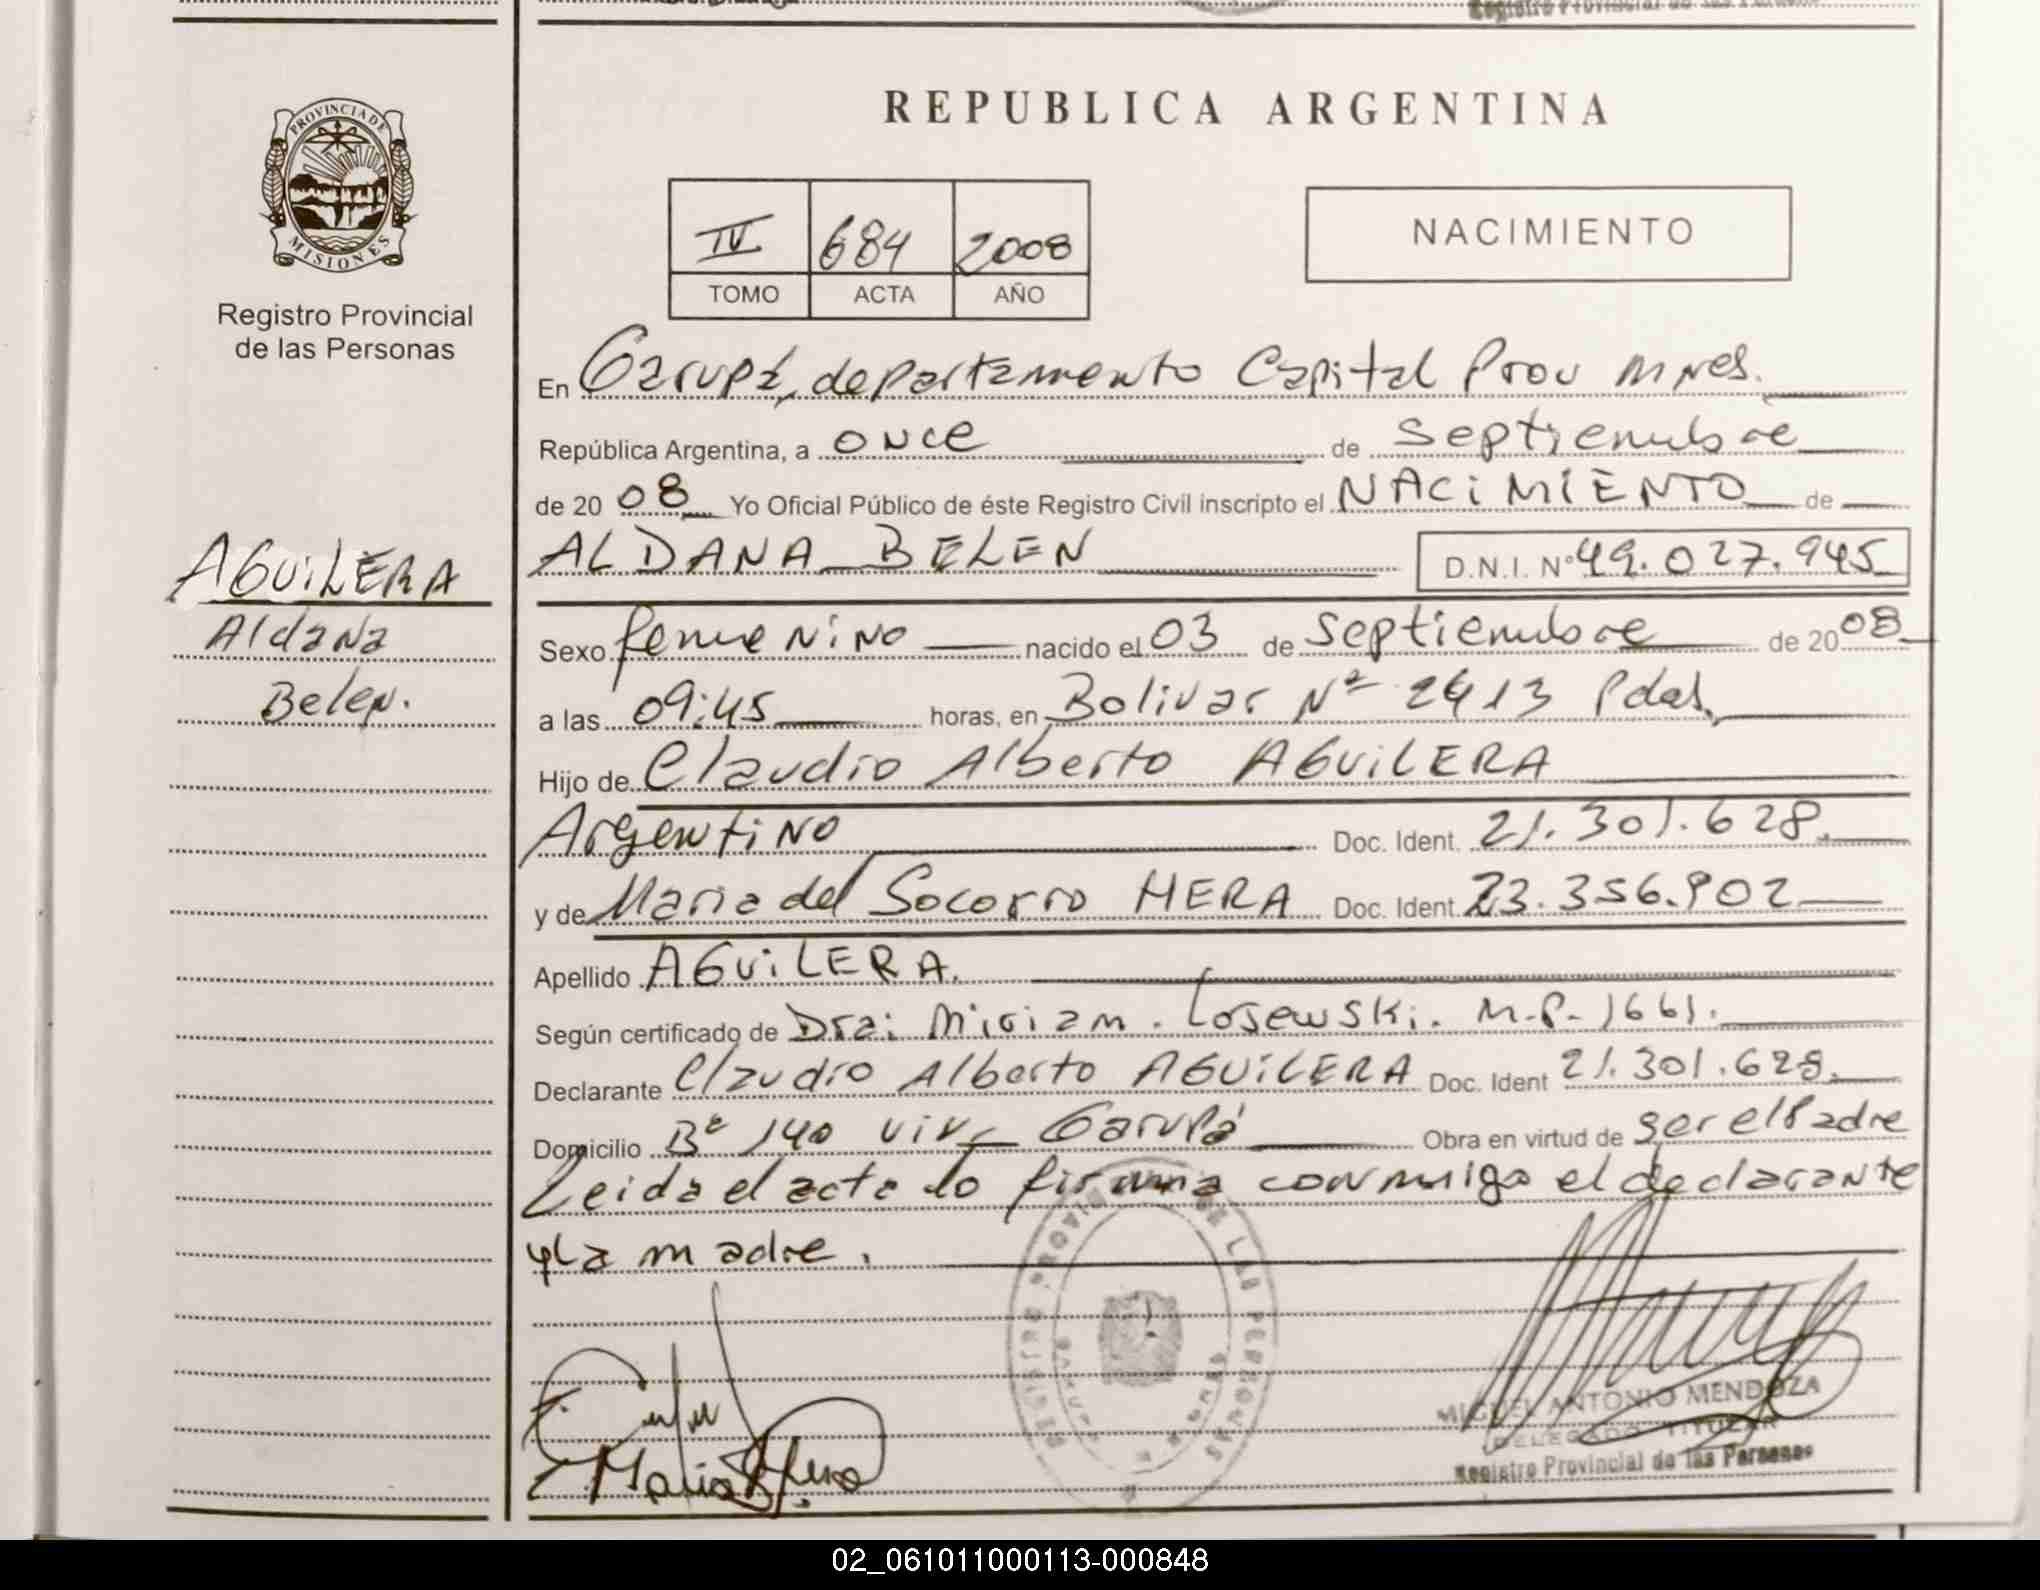 REPUBLICA ARGENTINA
PROVINCIA DE
MISIONES
Registro Provincial
de las Personas
IV 684 2008
TOMO ACTA AÑO
NACIMIENTO
En Garupá, departamento Capital Prov Mnes.
República Argentina, a once de septiembre
de 2008 Yo Oficial Público de éste Registro Civil inscripto el NACIMIENTO de
AGUILERA
Aldana
Belen.
ALDANA BELEN D.N.I. Nº 49.027.945
Sexo femenino nacido el 03 de septiembre de 2008
a las 09:45 horas, en Bolivar Nº 2413 Pdas.
Hijo de Claudio Alberto AGUILERA
Argentino Doc. Ident. 21.301.628.
y de Maria del Socorro MERA Doc. Ident. 23.356.902
Apellido AGUILERA.
Según certificado de Dra: Miriam. Losewski. M.P. 1661.
Declarante Claudio Alberto AGUILERA Doc. Ident 21.301.628.
Domicilio Bº 140 viv, Garupá Obra en virtud de ser el Padre
Leida el acta lo firma conmigo el declarante
y la madre.
REGISTRO PROVINCIAL DE LAS PERSONAS
GARUPA
MIGUEL ANTONIO MENDOZA
DELEGADO TITULAR
Registro Provincial de las Personas
02_061011000113-000848